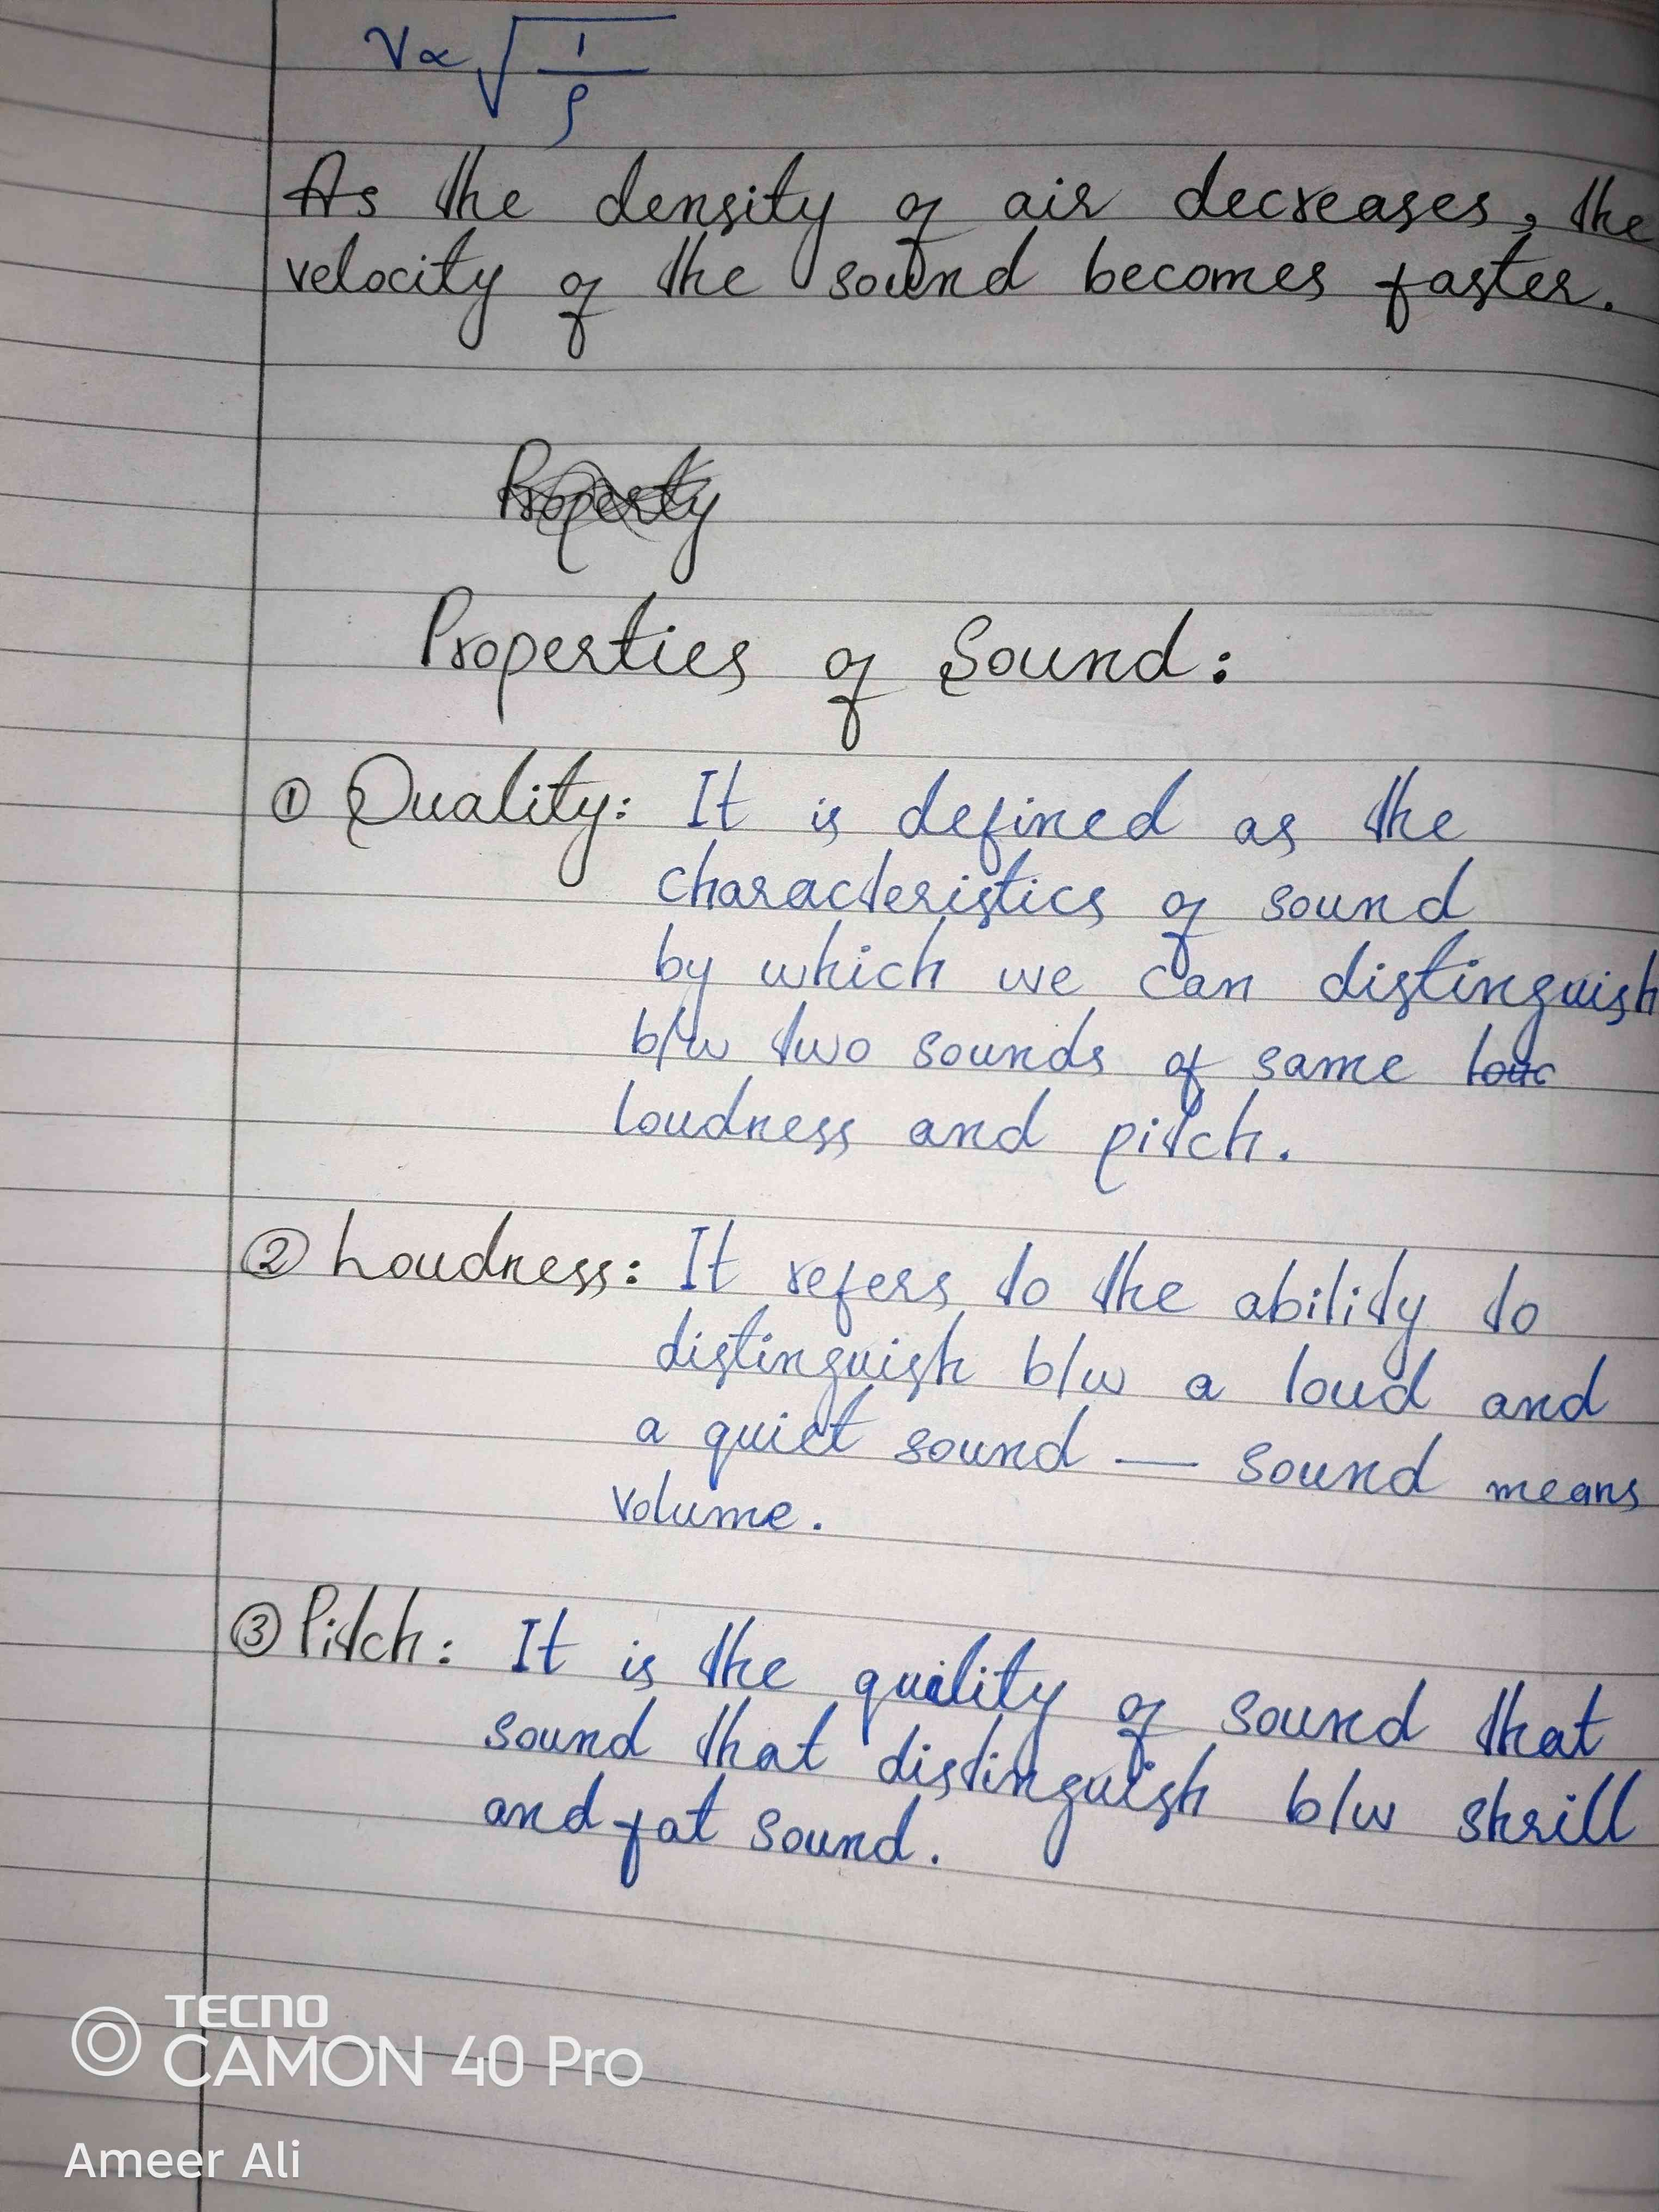 V ∝ √(1/ρ)
As the density of air decreases, the
velocity of the sound becomes faster.
Property
Properties of Sound:
① Quality: It is defined as the
characteristics of sound
by which we can distinguish
b/w two sounds of same louc
loudness and pitch.
② Loudness: It refers to the ability to
distinguish b/w a loud and
a quiet sound — sound means
volume.
③ Pitch: It is the quality of sound that
sound that distinguish b/w shrill
and fat sound.
TECNO
CAMON 40 Pro
Ameer Ali